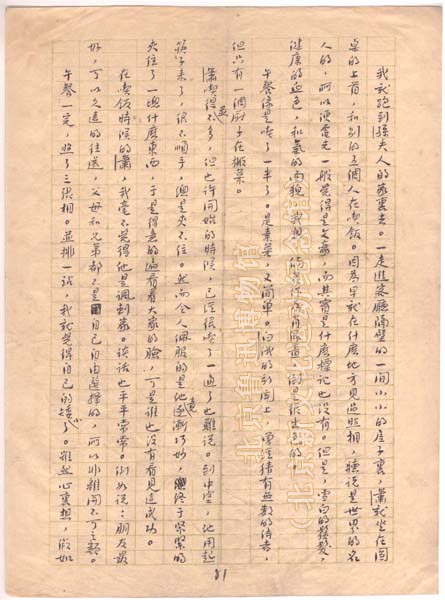 我就跑到孫夫人的家裏去。一走進客廳隔壁的一間小小的屋子裏,蕭就坐在圓
桌的上首,和别的五個人在吃飯。因爲早就在什麽地方見過照相,聽說是世界的名
人的,所以便電光一般覺得是文豪,而其實是什麽標記也没有。但是,雪白的鬚髮,
健康的血色,和氣的面貌,我想,倘若作爲肖像畫的模範,倒是很出色的。
午餐像是吃了一半了。是素菜,又簡單。白俄的新聞上,曾經猜有無數的侍者,
但只有一個厨子在搬菜。
蕭吃得並不多,但也許開始的時候,已經很吃了一通了也難說。到中途,他用起
筷子來了,很不順手,總是夾不住。然而令人佩服的是他竟逐漸巧妙,終于緊緊的
夾住了一塊什麽東西,于是得意的遍看着大家的臉,可是誰也没有看見這成功。
在吃飯時候的蕭,我毫不覺得他是諷刺家。談話也平平常常。例如說:朋友最
好,可以久遠的往還,父母和兄弟都不是自己自由選擇的,所以非離開不可之類。
午餐一完,照了三張相。並排一站,我就覺得自己的矮小了。雖然心裏想,假如
81
北京鲁迅博物馆
(北京新文化运动纪念馆)